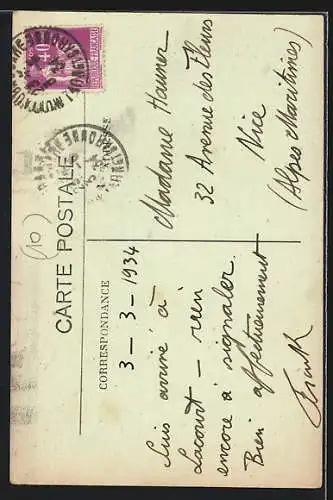 CARTE POSTALE
CORRESPONDANCE
3 - 3 - 1934
Suis arrivé à
Lacourt - rien
encore à signaler.
Bien affectueusement
Frank
Madame Hauner
32 Avenue des Fleurs
Nice
(Alpes Maritimes)
40
REPUBLIQUE FRANÇAISE
(10)